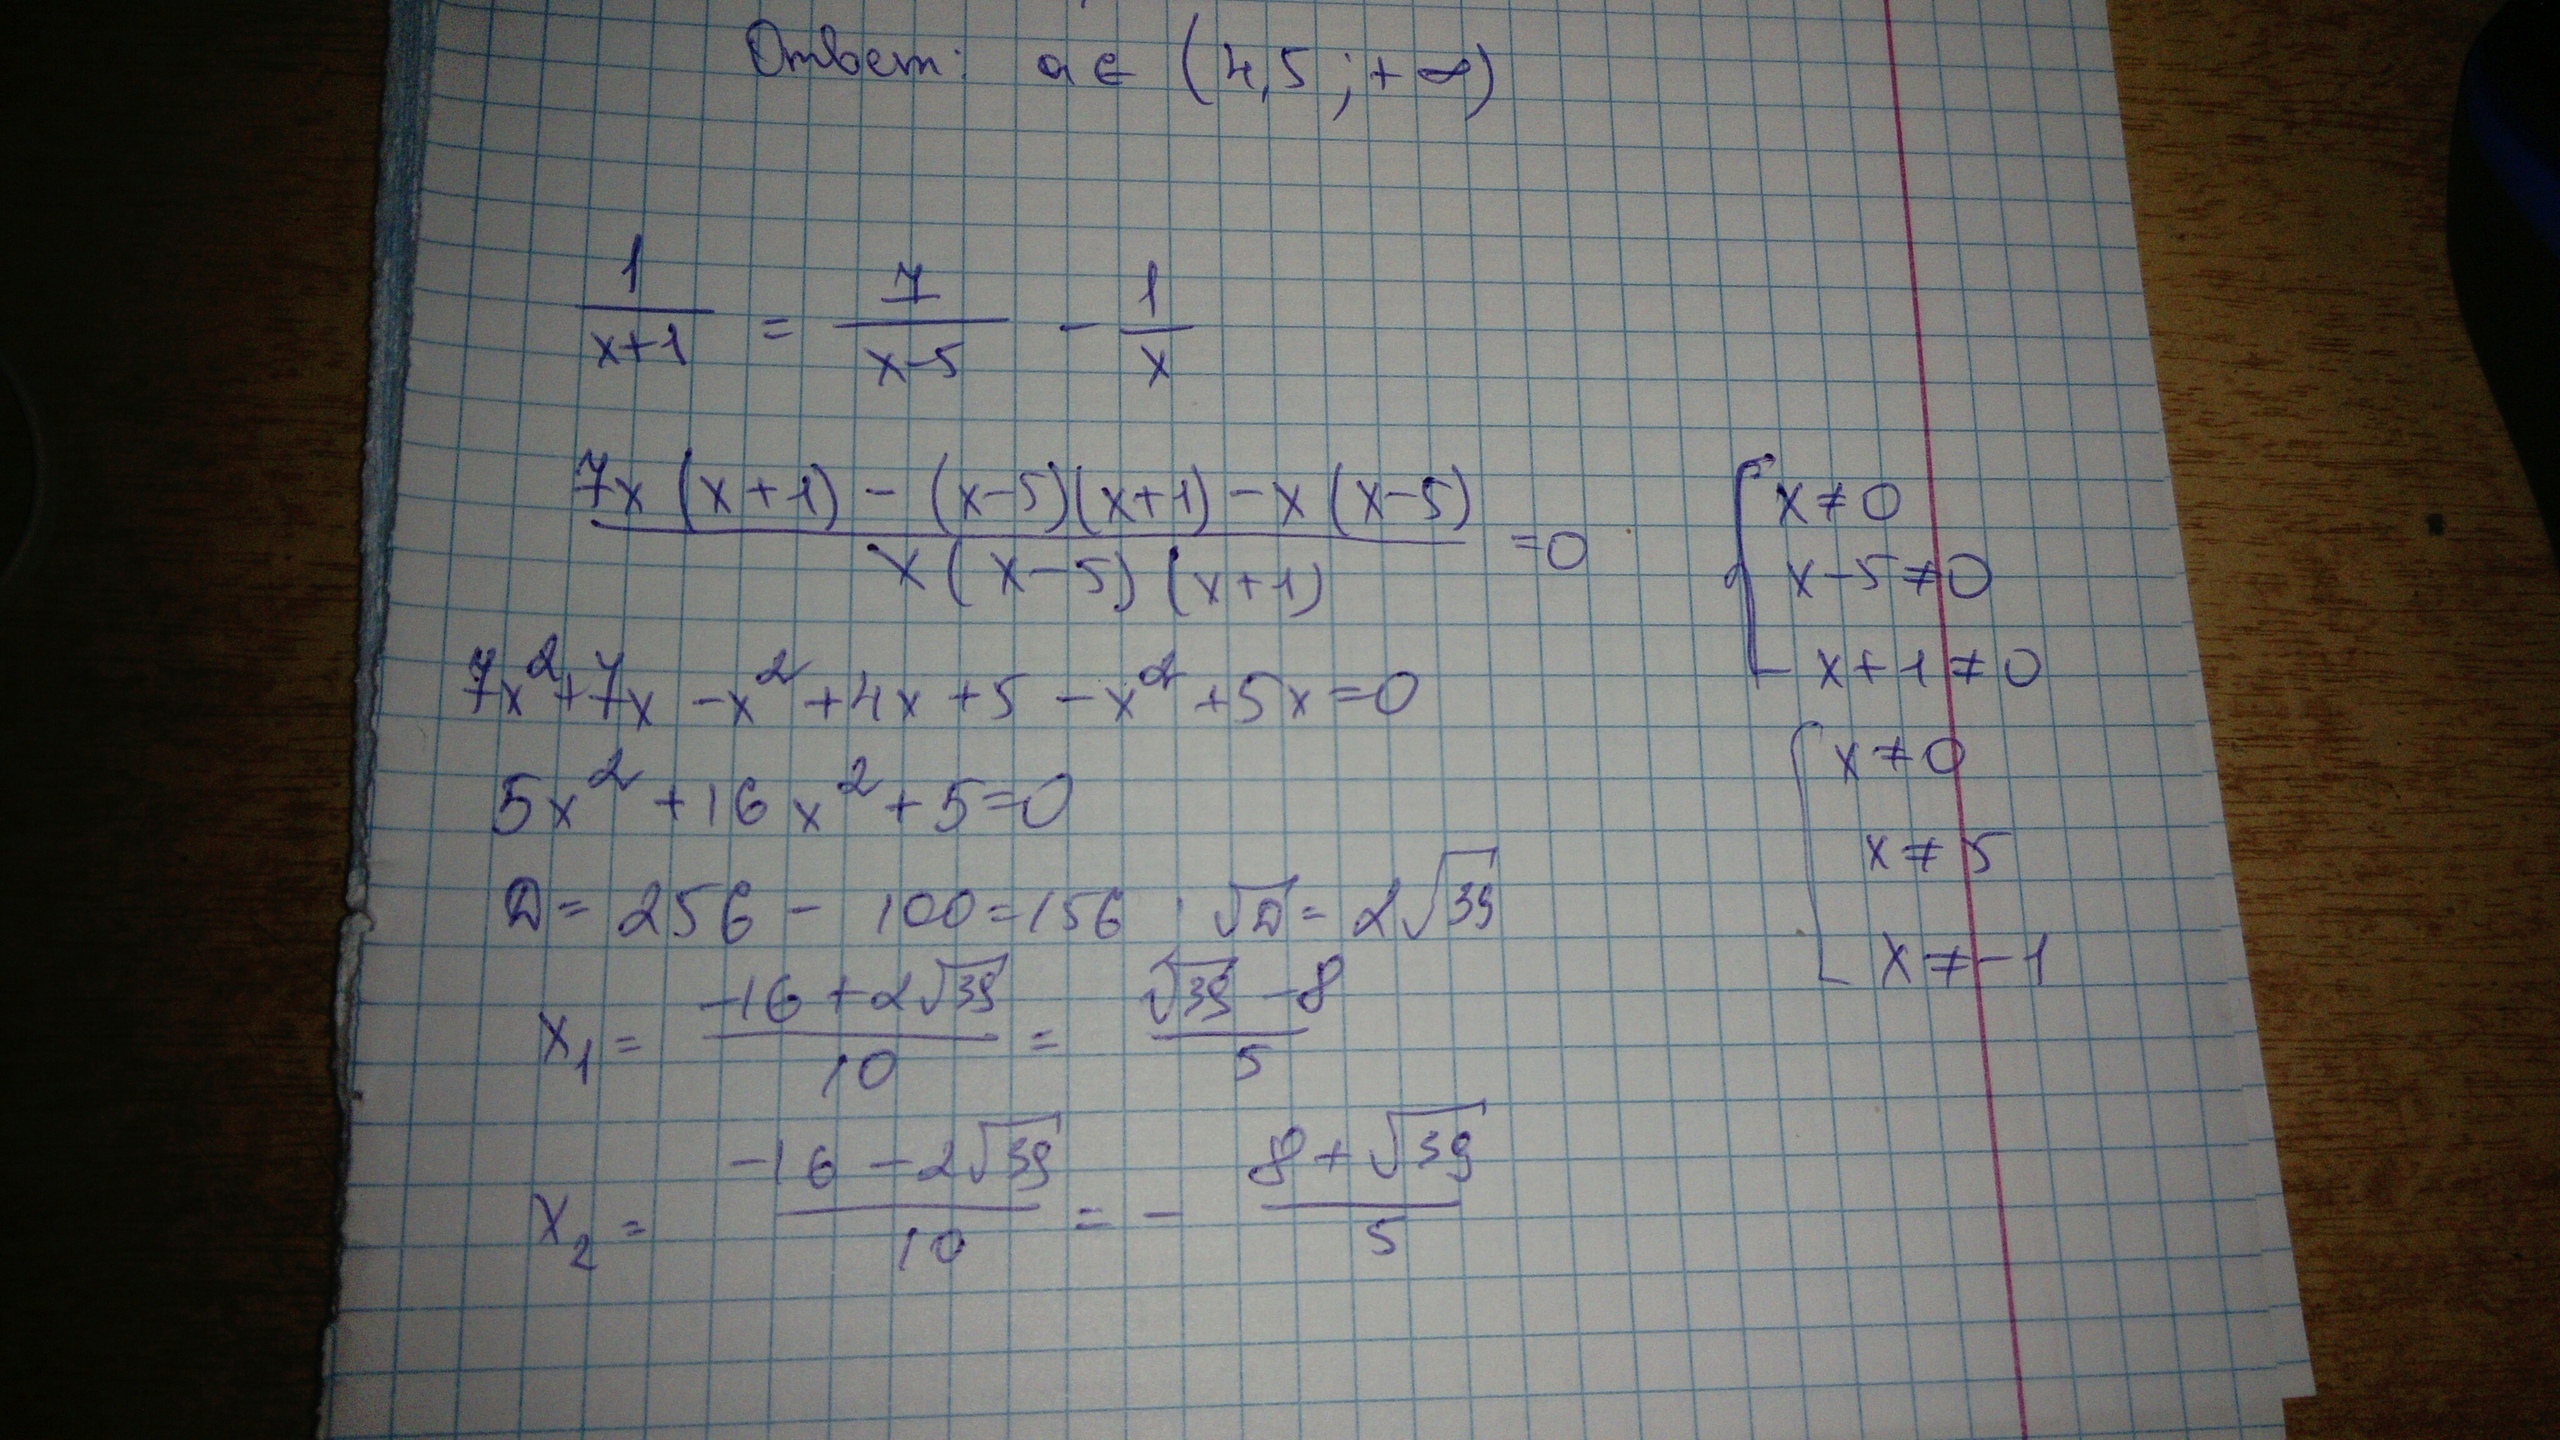 Ответ: a ∈ (4,5 ; +∞)
1/(x+1) = 7/(x-5) - 1/x
(7x(x+1) - (x-5)(x+1) - x(x-5))/(x(x-5)(x+1)) = 0
{ x≠0
x-5≠0
x+1≠0
7x² + 7x - x² + 4x + 5 - x² + 5x = 0
5x² + 16x² + 5 = 0
D = 256 - 100 = 156 , √D = 2√39
x₁ = (-16 + 2√39)/10 = (√39 - 8)/5
x₂ = (-16 - 2√39)/10 = - (8 + √39)/5
{ x≠0
x≠5
x≠-1